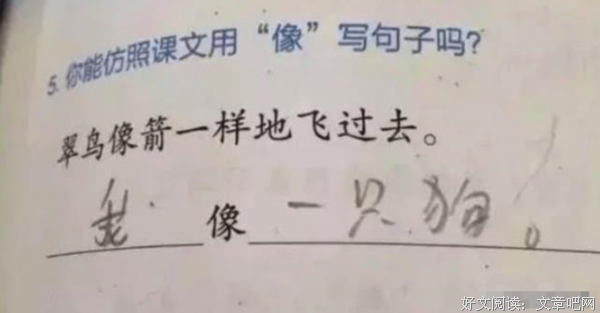 5. 你能仿照课文用“像”写句子吗?
翠鸟像箭一样地飞过去。
像一只狗。
好文阅读:文章吧网